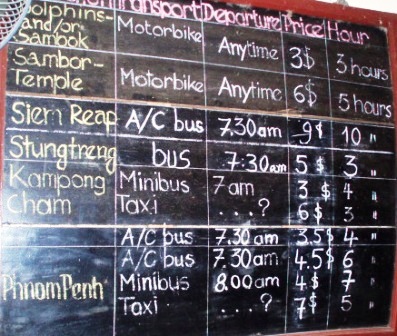 Transport Departure Price Hour
Dolphins-
and/or
Sambok Motorbike Anytime 3$ 3 hours
Sambor-
Temple Motorbike Anytime 6$ 5 hours
Siem Reap A/C bus 7.30am 9$ 10 "
Stungtreng bus 7:30am 5$ 3 "
Kampong Minibus 7am 3$ 4 "
Cham Taxi ...? 6$ 3 "
A/C bus 7.30am 3.5$ 4 "
A/C bus 7.30am 4.5$ 6 "
PhnomPenh Minibus 8.00am 4$ 7 "
Taxi ...? 7$ 5 "